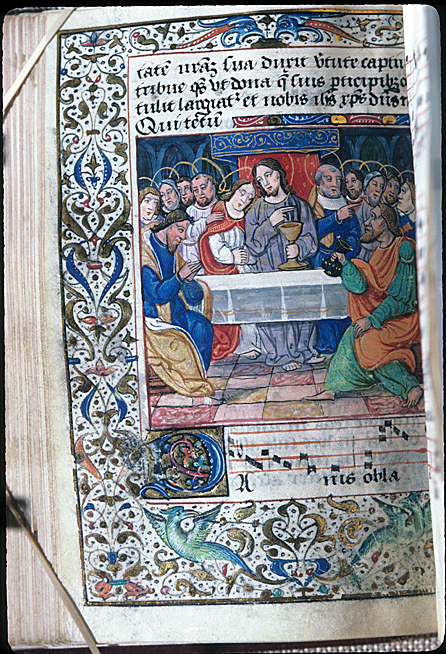 tatē nr̄aꝫ sua duxit v̄tute captiu
tribue qs̄ vt dona q̄ suis pticipibꝫ
tulit largiat᷑ et nobis ihs xp̄s dn̄s n
Qui tecū
PA nis obla